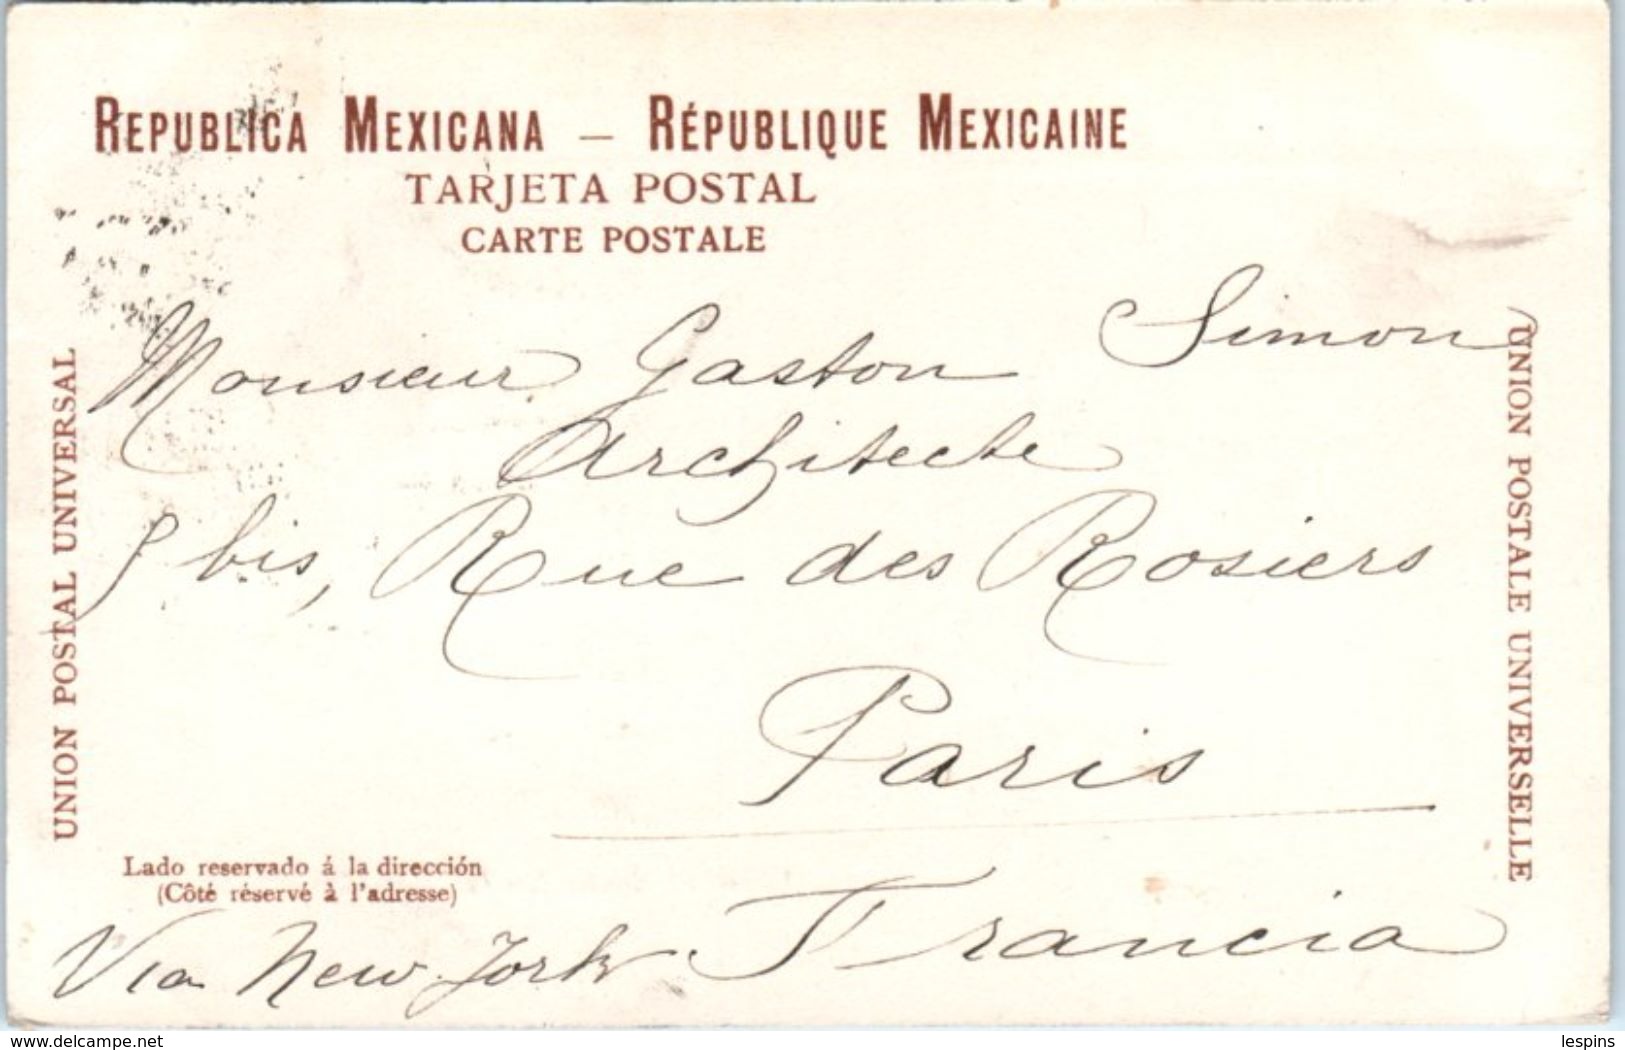 REPUBLICA MEXICANA — RÉPUBLIQUE MEXICAINE
TARJETA POSTAL
CARTE POSTALE
UNION POSTAL UNIVERSAL
UNION POSTALE UNIVERSELLE
Monsieur Gaston Simon
Architecte
9 bis, Rue des Rosiers
Paris
Lado reservado á la dirección
(Côté réservé à l'adresse)
Via New York. Francia
www.delcampe.net
lespins